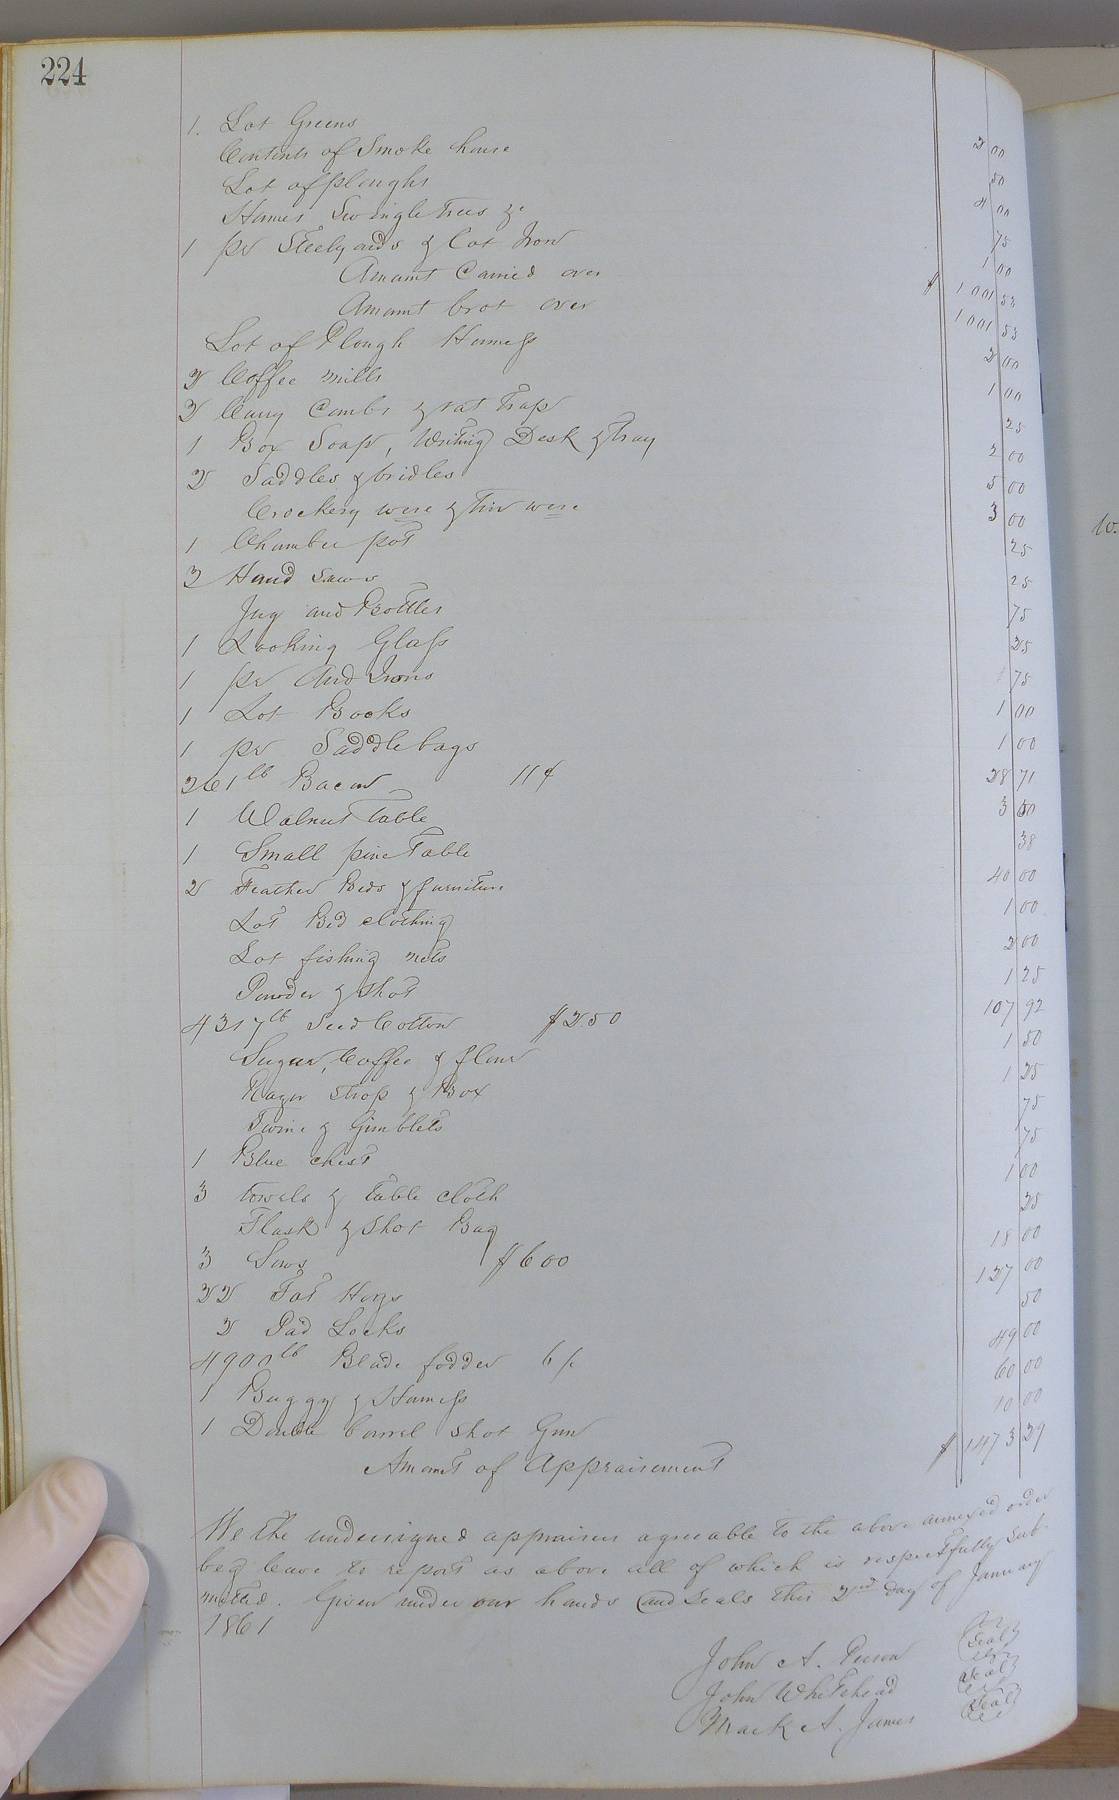 224
1. Lot Greens 2 00
Contents of Smoke house 50
Lot of ploughs 4 00
Hames Swingletrees &c 75
1 pr Steelyards & Lot Iron 1 00
Amount Carried over $ 1001 53
Amount brot over 1001 53
Lot of Plough Harness 2 00
2 Coffee mills 1 00
2 Curry Combs & rat Trap 25
1 Box Soap, Writing Desk & Tray 2 00
2 Saddles & bridles 5 00
Crockery were & Tin were 3 00
1 Chamber pot 25
2 Hand saws 25
Jug and Bottles 75
1 Looking Glass 25
1 pr And Irons 75
1 Lot Books 1 00
1 pr Saddlebags 1 00
261 lb Bacon 11¢ 28 71
1 Walnut Table 3 50
1 Small pine Table 38
2 Feather Beds & furniture 40 00
Lot Bed clothing 1 00
Lot fishing nets 2 00
Powder & Shot 1 25
4317 lb Seed Cotton $250 107 92
Sugar, Coffee & flour 1 50
Razor Strop & Box 1 25
Twine & Gimblets 75
1 Blue chest 75
3 towels & table cloth 1 00
Flask & Shot Bag 25
3 Sows $600 18 00
22 Fat Hogs 127 00
2 Pad Locks 50
4900 lb Blade fodder 6/ 49 00
1 Buggy & Harness 60 00
1 Double barrel Shot Gun 10 00
Amount of Appraisement $ 1473 29
We the undersigned appraisers agreable to the above annexed order
beg leave to report as above all of which is respectfully sub-
mitted. Given under our hands and seals this 2nd day of January
1861
John A. (Seal)
John Whitehead (Seal)
Mack A. James (Seal)